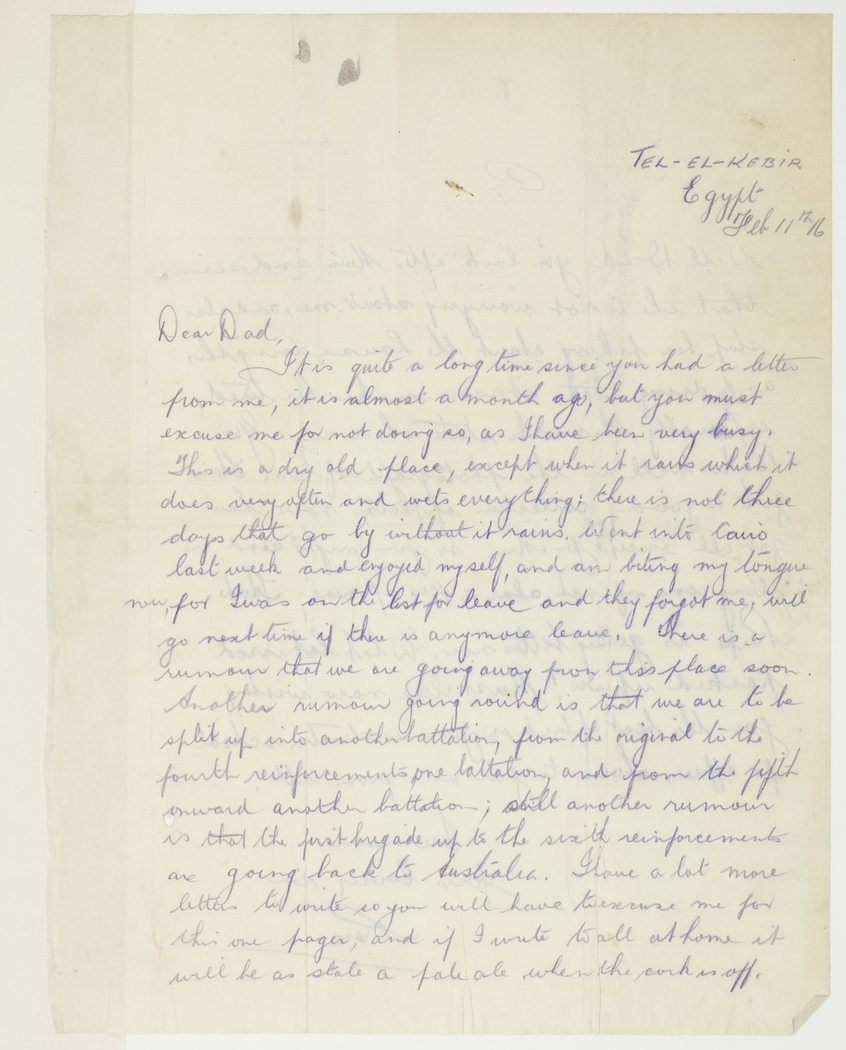 TEL-EL-KEBIR
Egypt
Feb 11th 16
Dear Dad,
It is quite a long time since you had a letter
from me, it is almost a month ago, but you must
excuse me for not doing so, as I have been very busy.
This is a dry old place, except when it rains which it
does very often and wets everything; there is not three
days that go by without it rains. Went into Cairo
last week and enjoyed myself, and am biting my tongue
now, for I was on the list for leave and they forgot me, will
go next time if there is anymore leave. There is a
rumour that we are going away from this place soon.
Another rumour going round is that we are to be
split up into another battation, from the original to the
fourth reinforcements, one battation, and from the fifth
onward another battation; still another rumour
is that the first brigade up to the sixth reinforcements
are going back to Australia. I have a lot more
letters to write so you will have to excuse me for
this one pager, and if I write to all at home it
will be as stale a pale ale when the cork is off.